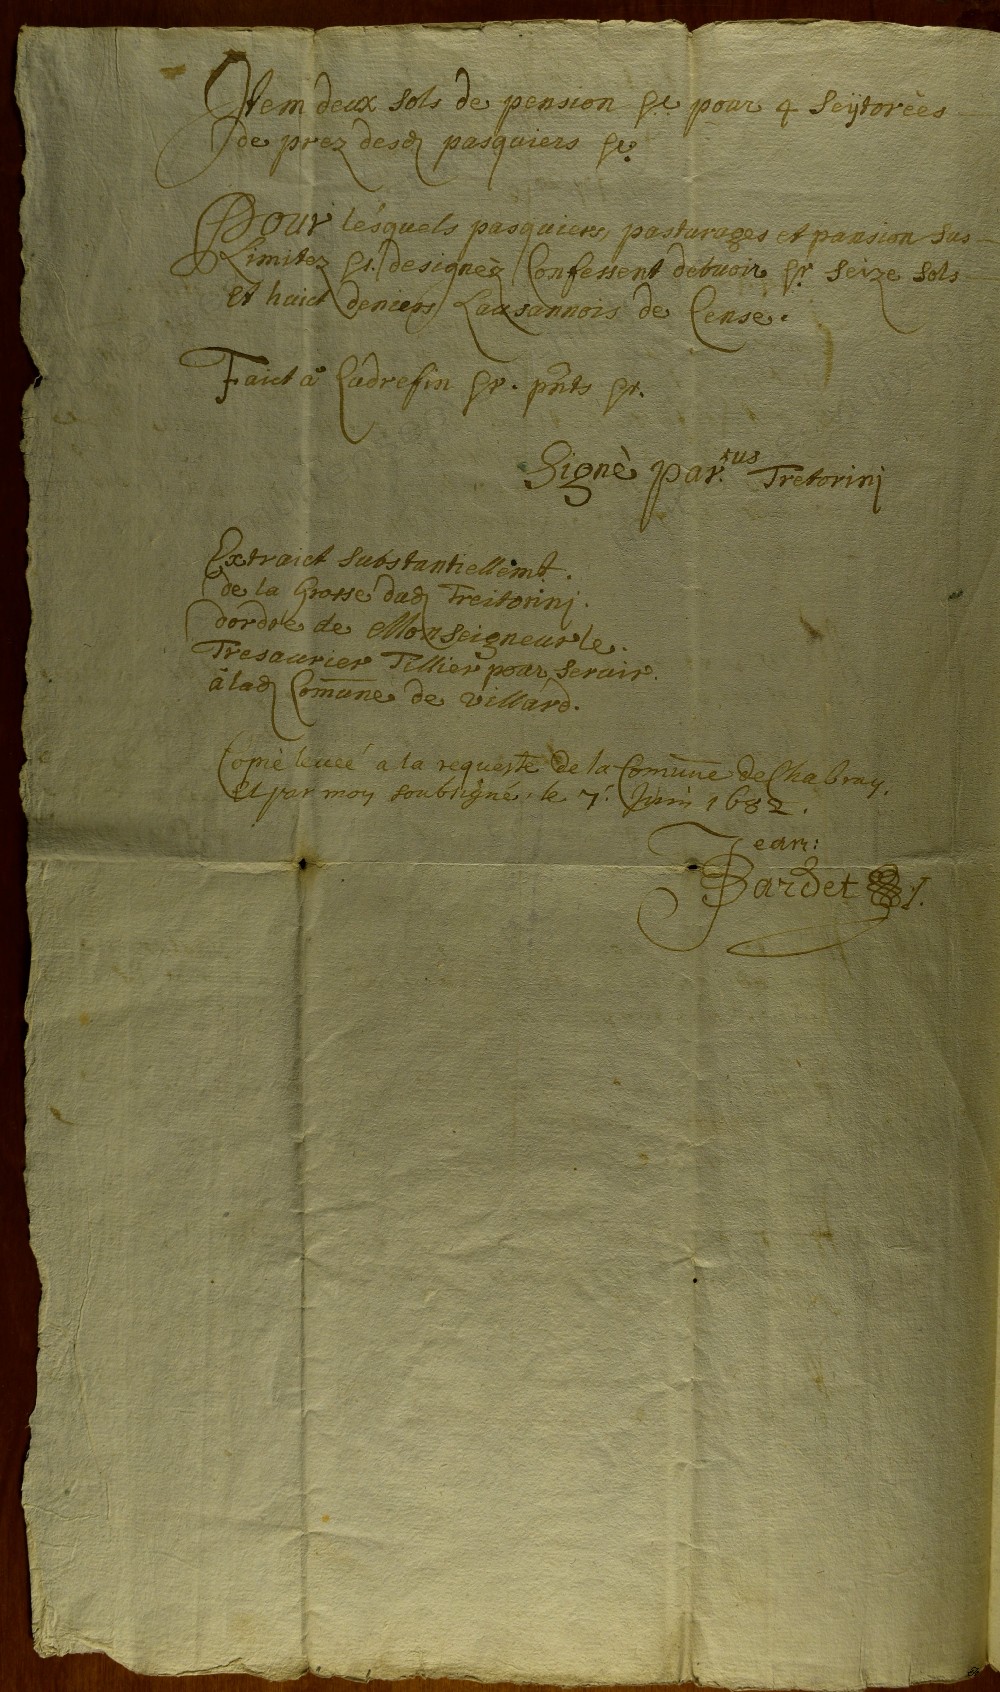 Item deux sols de pension &c. pour 4 seÿtorées
de prez desd. pasquiers &c.
Pour lesquels pasquiers, pasturages et pansion sus
Limitez &c. designéz Confessent debuoir &c. seize sols
et huict deniers Lausannois de Cense.
Faict à Cudrefin &c. pn̄ts &c.
Signè par.
Tretorinj
Extraict substantiellemt.
de la Grosse dud. Treitorinj.
dordre de Monseigneur le.
Tresaurier Tillier pour seruir.
à lad. Com̄une de villard.
Copie leueé a la requeste de la Com̄une de Chabray,
Et par moy soubsigné, le 7.e Juin 1682.
Jean:
Bardet